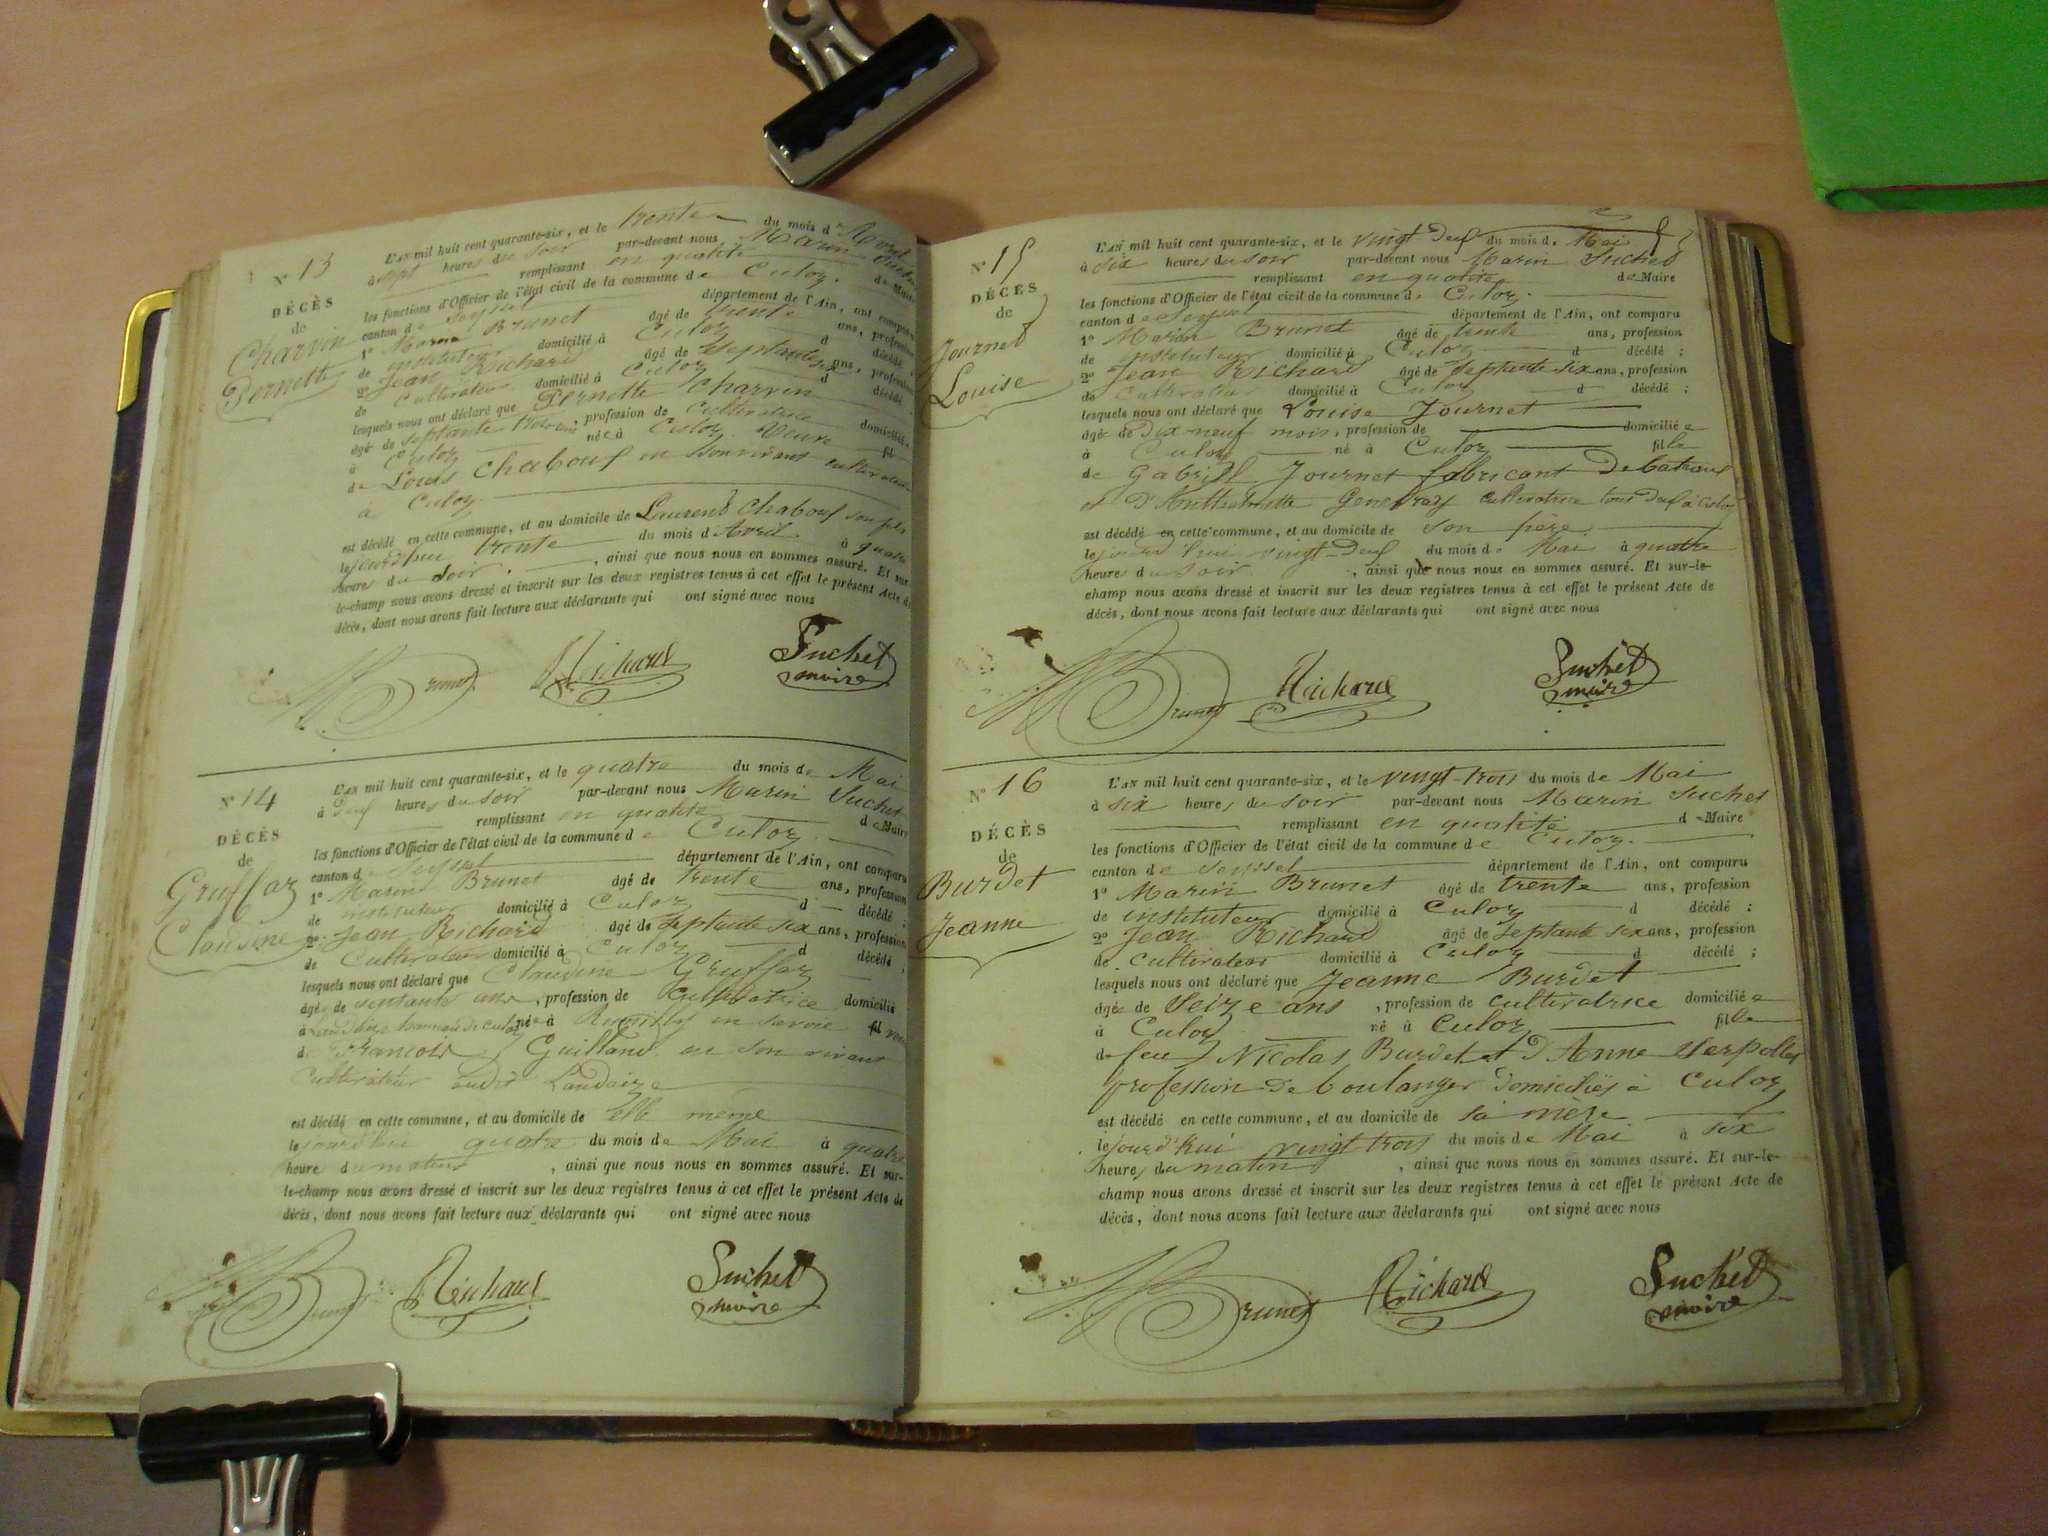 N° 13
DÉCÈS
de
Charvin
Pernette
L'AN mil huit cent quarante-six, et le trente du mois d'Avril
à sept heures du soir par-devant nous Marin Suchet
remplissant en qualité de Maire
les fonctions d'Officier de l'état civil de la commune de Culoz.
canton de Seyssel département de l'Ain, ont comparu
1° Marin Brunet âgé de trente ans, profession
de instituteur domicilié à Culoz d décédé ;
2° Jean Richard âgé de septante six ans, profession
de Cultivateur domicilié à Culoz d décédé
lesquels nous ont déclaré que Pernette Charvin
âgé de septante trois ans, profession de cultivatrice domiciliée
à Culoz née à Culoz Veuve fil
de Louis Chabouf en Son vivant cultivateur
à Culoz
est décédé en cette commune, et au domicile de Laurend Chabouf son fils
le jourd'hui trente du mois d'Avril à quatre
heures du soir. , ainsi que nous nous en sommes assuré. Et sur-
le-champ nous avons dressé et inscrit sur les deux registres tenus à cet effet le présent Acte de
décès, dont nous avons fait lecture aux déclarants qui ont signé avec nous
Brunet Richard Suchet
maire
N° 14
DÉCÈS
de
Gruffaz
Claudine
L'AN mil huit cent quarante-six, et le quatre du mois de Mai
à Deuf heures du soir par-devant nous Marin Suchet
remplissant en qualité de Maire
les fonctions d'Officier de l'état civil de la commune de Culoz.
canton de Seyssel département de l'Ain, ont comparu
1° Marin Brunet âgé de trente ans, profession
de instituteur domicilié à Culoz d décédé ;
2° Jean Richard âgé de septante six ans, profession
de Cultivateur domicilié à Culoz d décédé ;
lesquels nous ont déclaré que Claudine Gruffaz
âgé de septante ans, profession de Cultivatrice domicilié
à hameau de culoz née à Rumilly en savoie fil
de François Guilland en son vivant
Cultivateur audit Landaize
est décédé en cette commune, et au domicile de Elle même
le jourd'hui quatre du mois de Mai à quatre
heure du matin , ainsi que nous nous en sommes assuré. Et sur-
le-champ nous avons dressé et inscrit sur les deux registres tenus à cet effet le présent Acte de
décès, dont nous avons fait lecture aux déclarants qui ont signé avec nous
Brunet Richard Suchet
maire
N° 15
DÉCÈS
de
Journet
Louise
L'AN mil huit cent quarante-six, et le vingt Deuf du mois de Mai
à six heures du soir par-devant nous Marin Suchet
remplissant en qualité de Maire
les fonctions d'Officier de l'état civil de la commune de Culoz.
canton de Seyssel département de l'Ain, ont comparu
1° Marin Brunet âgé de trente ans, profession
de instituteur domicilié à Culoz d décédé ;
2° Jean Richard âgé de septante six ans, profession
de Cultivateur domicilié à Culoz d décédé ;
lesquels nous ont déclaré que Louise Journet
âgé de Dix neuf mois, profession de domiciliée
à Culoz né à Culoz fille
de Gabriel Journet fabricant De bateaux
et D' cultivatrice tous deuf à Culoz
est décédé en cette commune, et au domicile de son père
le jourd'hui vingt-Deuf du mois de Mai à quatre
heures du soir. , ainsi que nous nous en sommes assuré. Et sur-le-
champ nous avons dressé et inscrit sur les deux registres tenus à cet effet le présent Acte de
décès, dont nous avons fait lecture aux déclarants qui ont signé avec nous
Brunet Richard Suchet
maire
N° 16
DÉCÈS
de
Burdet
Jeanne
L'AN mil huit cent quarante-six, et le vingt-trois du mois de Mai
à six heures du soir par-devant nous Marin Suchet
remplissant en qualité de Maire
les fonctions d'Officier de l'état civil de la commune de Culoz.
canton de Seyssel département de l'Ain, ont comparu
1° Marin Brunet âgé de trente ans, profession
de instituteur domicilié à Culoz d décédé ;
2° Jean Richard âgé de septante six ans, profession
de cultivateur domicilié à Culoz d décédé ;
lesquels nous ont déclaré que Jeanne Burdet
âgé de Seize ans , profession de cultivatrice domiciliée
à Culoz né à Culoz fille
de feu Nicolas Burdet et D'Anne Serpollet
profession De boulanger domiciliés à Culoz
est décédé en cette commune, et au domicile de sa mère
le jourd'hui vingt trois du mois de Mai à six
heures du matin , ainsi que nous nous en sommes assuré. Et sur-le-
champ nous avons dressé et inscrit sur les deux registres tenus à cet effet le présent Acte de
décès, dont nous avons fait lecture aux déclarants qui ont signé avec nous
Brunet Richard Suchet
maire